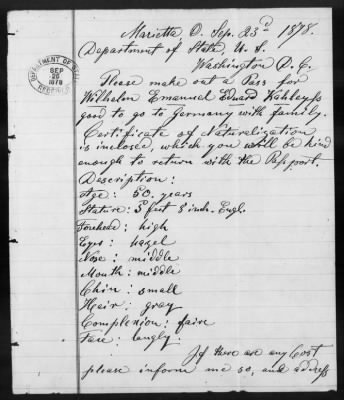 Marietta, O. Sep. 23d 1878.
Department of State, U. S.
Washington D. C.
DEPARTMENT OF STATE
SEP
26
1878
RECEIVED
Please make out a Pass for
Wilhelm Emanuel Eduard
good to go to Germany with family.
Certificate of Naturalization
is inclosed, which you will be kind
enough to return with the Passport.
Description:
Age: 50. years
Stature: 5 feet 8 inch. Engl.
Forehead: high
Eyes: hazel
Nose: middle
Mouth: middle
Chin: small
Hair: gray
Complexion: faire
Face: longly
If there are any Cost
please inform me so, and address